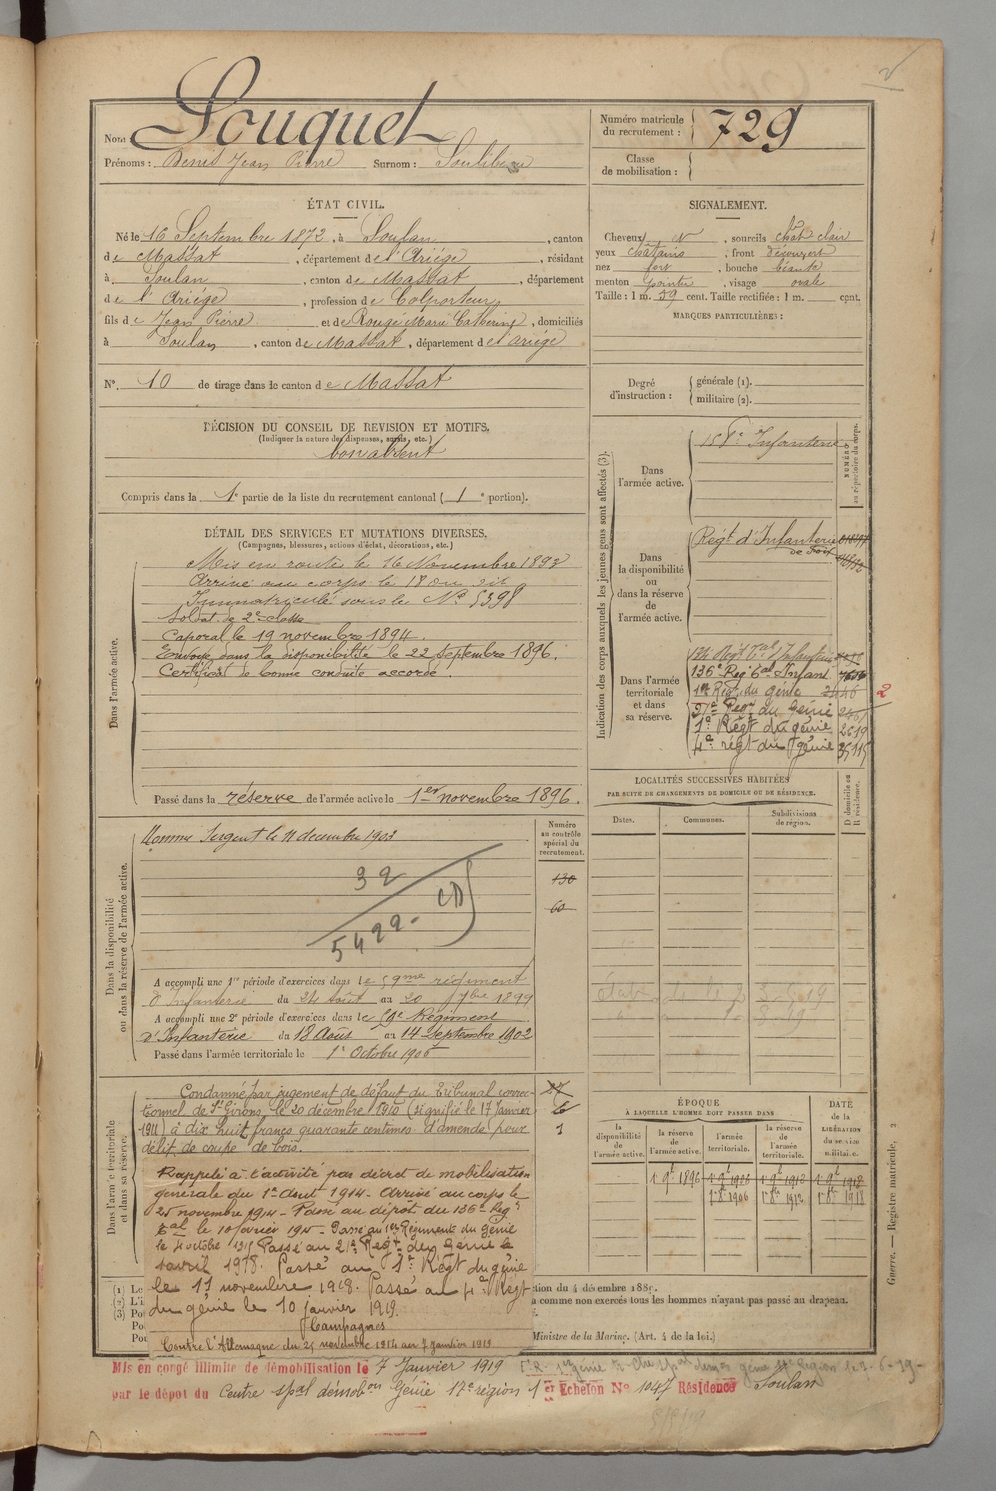 Nom: Souquet
Prénoms: Denis Jean Pierre Surnom:
Numéro matricule du recrutement: 729
Classe de mobilisation:
ÉTAT CIVIL.
Né le 16 Septembre 1872, à Soulan, canton
de Massat, département de l'Ariége, résidant
à Soulan, canton de Massat, département
de l'Ariége, profession de Colporteur
fils de Jean Pierre et de Rougé Marie Catherine, domiciliés
à Soulan, canton de Massat, département de l'ariége
No. 10 de tirage dans le canton de Massat
DÉCISION DU CONSEIL DE REVISION ET MOTIFS.
(Indiquer la nature des dispenses, sursis, etc.)
bon absent
Compris dans la 1e partie de la liste du recrutement cantonal (1e portion).
SIGNALEMENT.
Cheveux, sourcils chat clair
yeux châtains, front découvert
nez fort, bouche béante
menton pointu, visage ovale
Taille: 1 m. 59 cent. Taille rectifiée: 1 m. cent.
MARQUES PARTICULIÈRES:
Degré d'instruction: générale (1).
militaire (2).
DÉTAIL DES SERVICES ET MUTATIONS DIVERSES.
(Campagnes, blessures, actions d'éclat, décorations, etc.)
Dans l'armée active.
Mis en route le 16 Novembre 1893
Arrivé au corps le 18 du dit
Immatriculé sous le No 5398
Soldat de 2e classe
Caporal le 19 novembre 1894.
Envoyé dans la disponibilité le 22 septembre 1896.
Certificat de bonne conduite accordé.
Passé dans la réserve de l'armée active le 1er novembre 1896.
Indication des corps auxquels les jeunes gens sont affectés (3).
NUMÉRO au répertoire du corps.
Dans l'armée active.
Infanterie
Dans la disponibilité ou dans la réserve de l'armée active.
Régt d'Infanterie
de Foix
Dans l'armée territoriale et dans sa réserve.
136e Reg tal d'Infant
1er Régt du génie
21e Regt du Génie
1er Régt du génie 2619
4e régt du génie
2
LOCALITÉS SUCCESSIVES HABITÉES
PAR SUITE DE CHANGEMENTS DE DOMICILE OU DE RÉSIDENCE.
Dates. Communes. Subdivisions de région. D domicile ou R résidence.
Dans la disponibilité ou dans la réserve de l'armée active.
Numéro au contrôle spécial du recrutement.
Nommé Sergent le 11 decembre 1903
130
60
32
5422
A accompli une 1re période d'exercices dans le 59me régiment
d'Infanterie du 24 août au 20 7bre 1899
A accompli une 2e période d'exercices dans le 59e Régiment
d'Infanterie du 18 Août au 14 Septembre 1902
Passé dans l'armée territoriale le 1er Octobre 1906
Dans l'armée territoriale et dans sa réserve.
Condamné par jugement de défaut du Tribunal correc-
tionnel de St Girons, le 20 décembre 1910 (signifié le 17 janvier
1911) à dix huit francs quarante centimes d'amende pour
délit de coupe de bois.
1
Rappelé à l'activité par décret de mobilisation
générale du 1er Aout 1914 - Arrivé au corps le
25 novembre 1914 - Passé au dépôt du 136e Regt
tal le 10 février 1915 - Passé au 1er Régiment du Génie
le 4 octobre 1915 Passé au 21e Regt du Génie le
avril 1918. Passé au 1er Régt du génie
le 11 novembre 1918. Passé au 4e Régt
du génie le 10 janvier 1919.
Campagnes
Contre l'Allemagne du 25 novembre 1914 au 7 Janvier 1919
ÉPOQUE
À LAQUELLE L'HOMME DOIT PASSER DANS
DATE de la LIBÉRATION du service militaire.
la disponibilité de l'armée active. la réserve de l'armée active. l'armée territoriale. la réserve de l'armée territoriale.
1896 1906 1912 1918
1906 1912 1918
(1) Le
(2) L'i
(3) Pou
tion du 4 décembre 1889.
a comme non exercés tous les hommes n'ayant pas passé au drapeau.
Ministre de la Marine. (Art. 4 de la loi.)
Guerre. — Registre matricule, 2
Mis en congé illimité de démobilisation le 7 Janvier 1919
par le dépôt du Centre spal démobon Génie 17e région 1er Echelon No 1047 Résidence Soulan